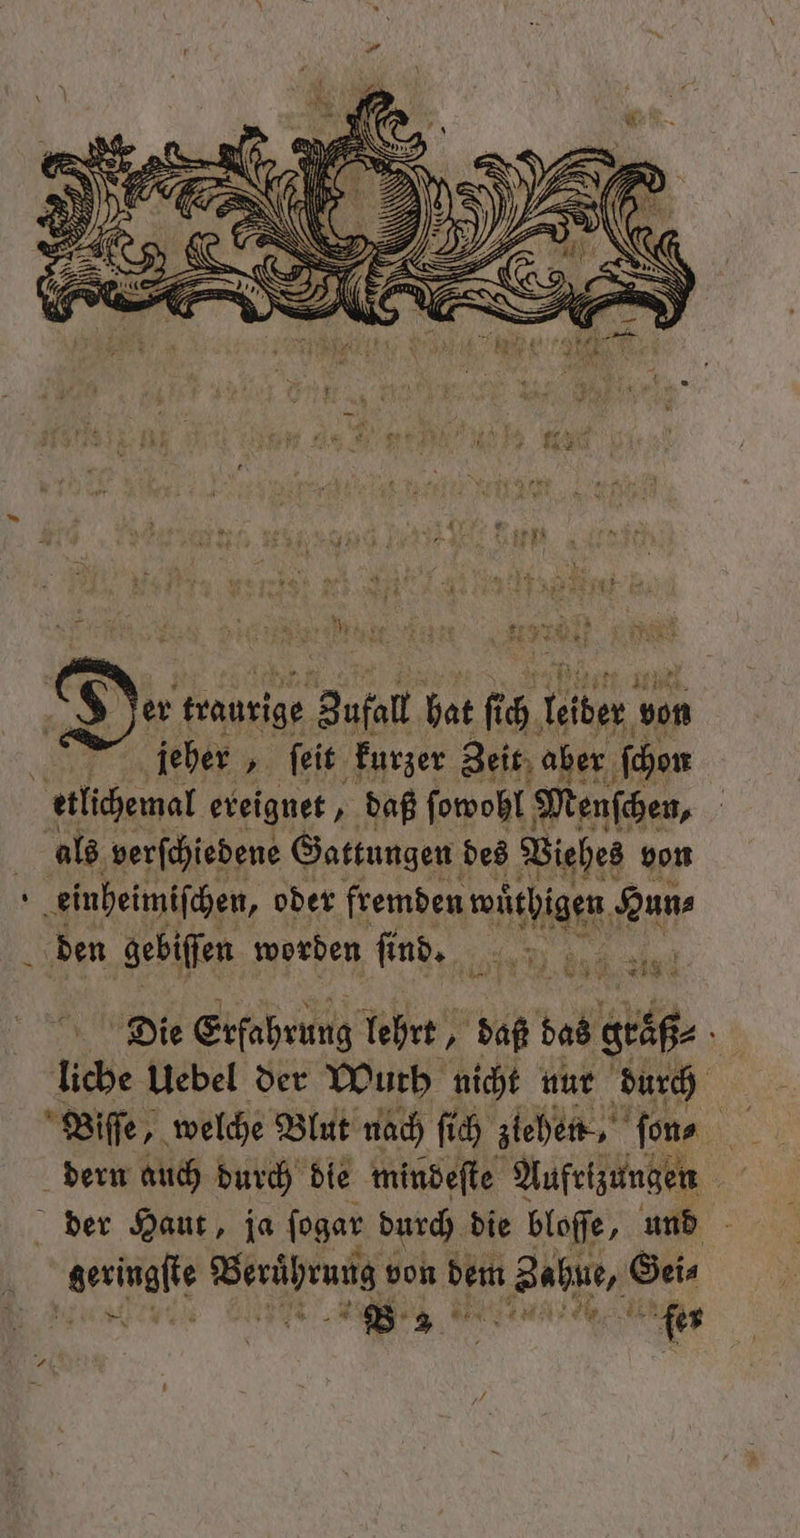 Der traurige Zufall hat ſich leider von
jeher, ſeit kurzer Zeit aber ſchon
etlichemal ereignet, daß ſowohl Menſchen,
als verſchiedene Gattungen des Viehes von
einheimiſchen, oder fremden wuͤthigen Hun⸗
den gebiſſen worden ſind.
Die Erfahrung lehrt, daß das graͤß⸗
liche Uebel der Wuth nicht nur durch
Biſſe, welche Blut nach ſich ziehen, ſon⸗
dern auch durch die mindeſte Aufrizungen
der Haut, ja ſogar durch die bloſſe, und
geringſte Beruͤhrung von dem Zahne, Gei⸗
B 2 fer